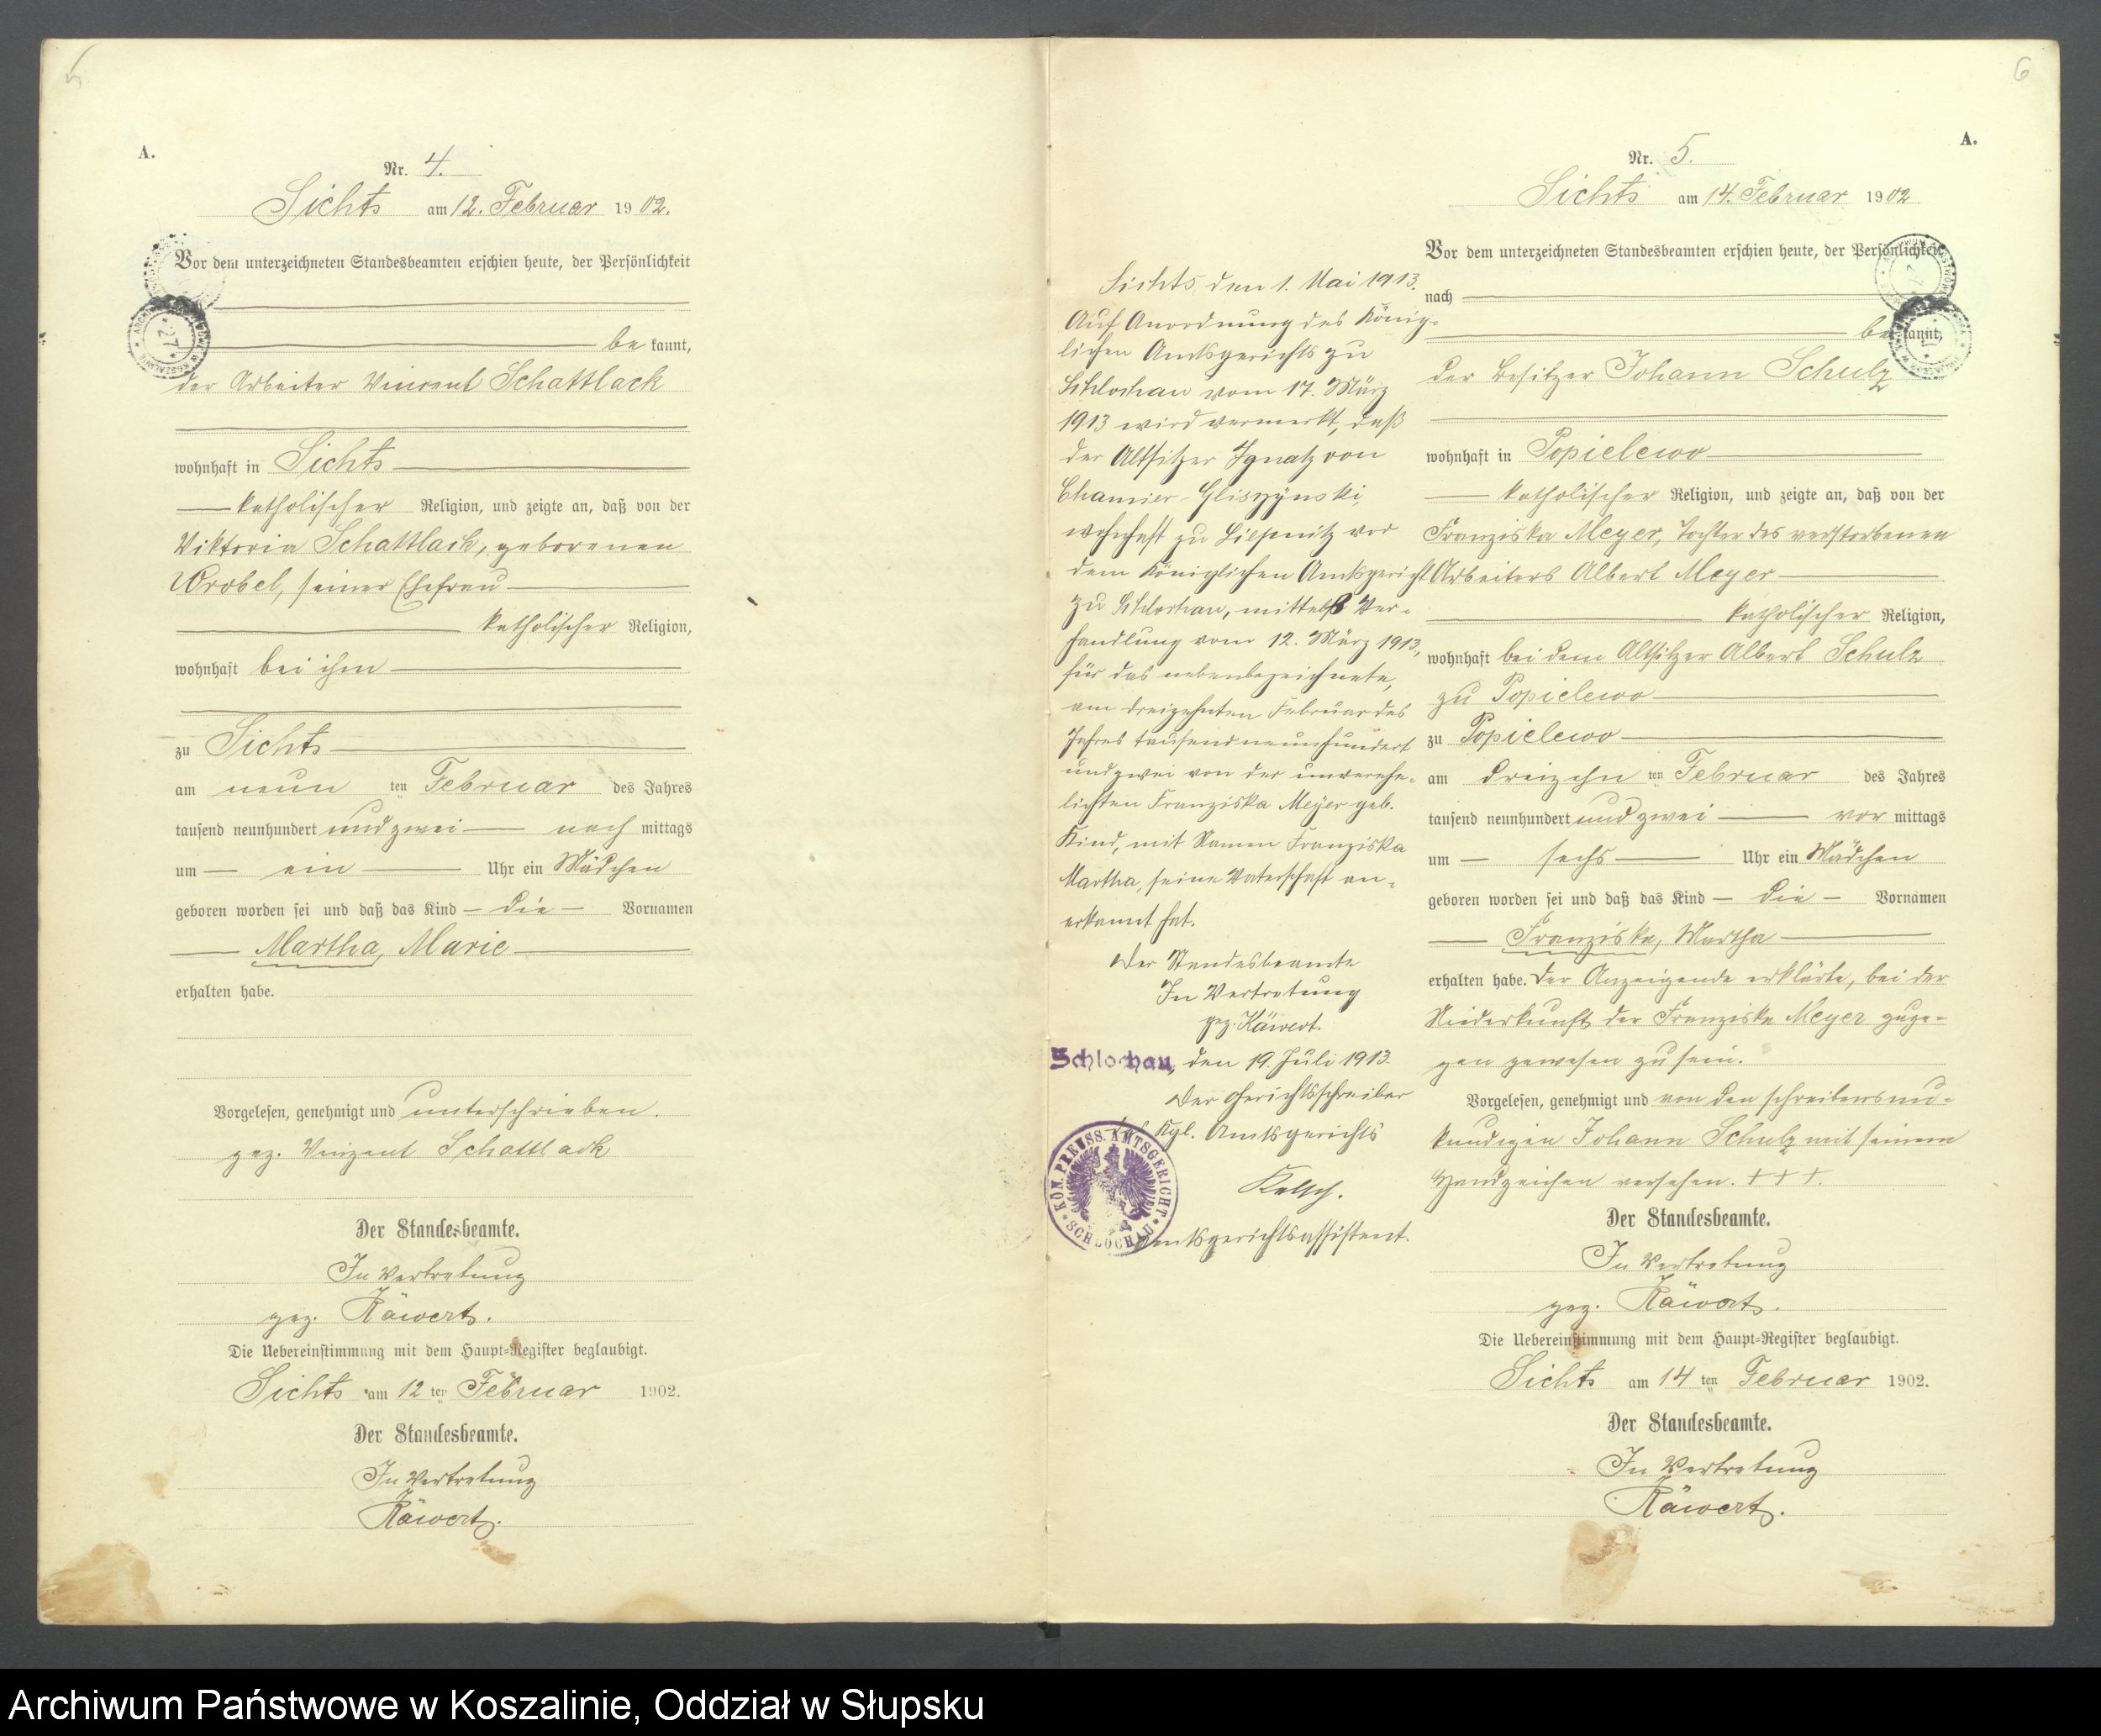 5
A.
Nr. 4.
Sichts am 12. Februar 1902.
Vor dem unterzeichneten Standesbeamten erschien heute, der Persönlichkeit
be kannt,
der Arbeiter Vincent Schattlack
wohnhaft in Sichts
katholischer Religion, und zeigte an, daß von der
Viktoria Schattlack, geborenen
Wrobel, seiner Ehefrau
katholischer Religion,
wohnhaft bei ihm
zu Sichts
am neun ten Februar des Jahres
tausend neunhundert und zwei nach mittags
um ein Uhr ein Mädchen
geboren worden sei und daß das Kind die Vornamen
Martha, Marie
erhalten habe.
Vorgelesen, genehmigt und unterschrieben.
gez. Vinzent Schattlack
Der Standesbeamte.
In Vertretung
gez. Käwert.
Die Uebereinstimmung mit dem Haupt-Register beglaubigt.
Sichts am 12 ten Februar 1902.
Der Standesbeamte.
In Vertretung
Käwert.
6
A.
Sichts, den 1. Mai 1913.
Auf Anordnung des König-
lichen Amtsgerichts zu
Schlochau vom 17. März
1913 wird vermerkt, daß
der Altsitzer Ignatz von
Chamier-Gliszzÿnski,
wohnhaft zu Liepnitz vor
dem Königlichen Amtsgericht
zu Schlochau, mittelst Ver-
handlung vom 12. März 1913,
für das nebenbezeichnete,
am dreizehnten Februar des
Jahres tausend neunhundert
und zwei von der unverehe-
lichten Franziska Meÿer geb.
Kind, mit Namen Franziska
Martha, seine Vaterschaft an-
erkannt hat.
Der Standesbeamte
In Vertretung
gez. Käwert.
Schlochau, den 19. Juli 1913.
Der Gerichtsschreiber
des Kgl. Amtsgerichts
KÖN. PREUSS. AMTSGERICHT
SCHLOCHAU
Amtsgerichtsassistent.
Nr. 5.
Sichts am 14. Februar 1902
Vor dem unterzeichneten Standesbeamten erschien heute, der Persönlichkeit
nach
be kannt,
der Besitzer Johann Schulz
wohnhaft in Popielewo
katholischer Religion, und zeigte an, daß von der
Franziska Meyer, Tochter des verstorbenen
Arbeiters Albert Meyer
katholischer Religion,
wohnhaft bei dem Altsitzer Albert Schulz
zu Popielewo
zu Popielewo
am dreizehn ten Februar des Jahres
tausend neunhundert und zwei vor mittags
um sechs Uhr ein Mädchen
geboren worden sei und daß das Kind die Vornamen
Franziska, Martha
erhalten habe. Der Anzeigende erklärte, bei der
Niederkunft der Franziska Meyer zuge-
gen gewesen zu sein.
Vorgelesen, genehmigt und von den schreibensun-
kundigen Johann Schulz mit seinem
Handzeichen versehen. + + +.
Der Standesbeamte.
In Vertretung
gez. Käwert.
Die Uebereinstimmung mit dem Haupt-Register beglaubigt.
Sichts am 14 ten Februar 1902.
Der Standesbeamte.
In Vertretung
Käwert.
Archiwum Państwowe w Koszalinie, Oddział w Słupsku